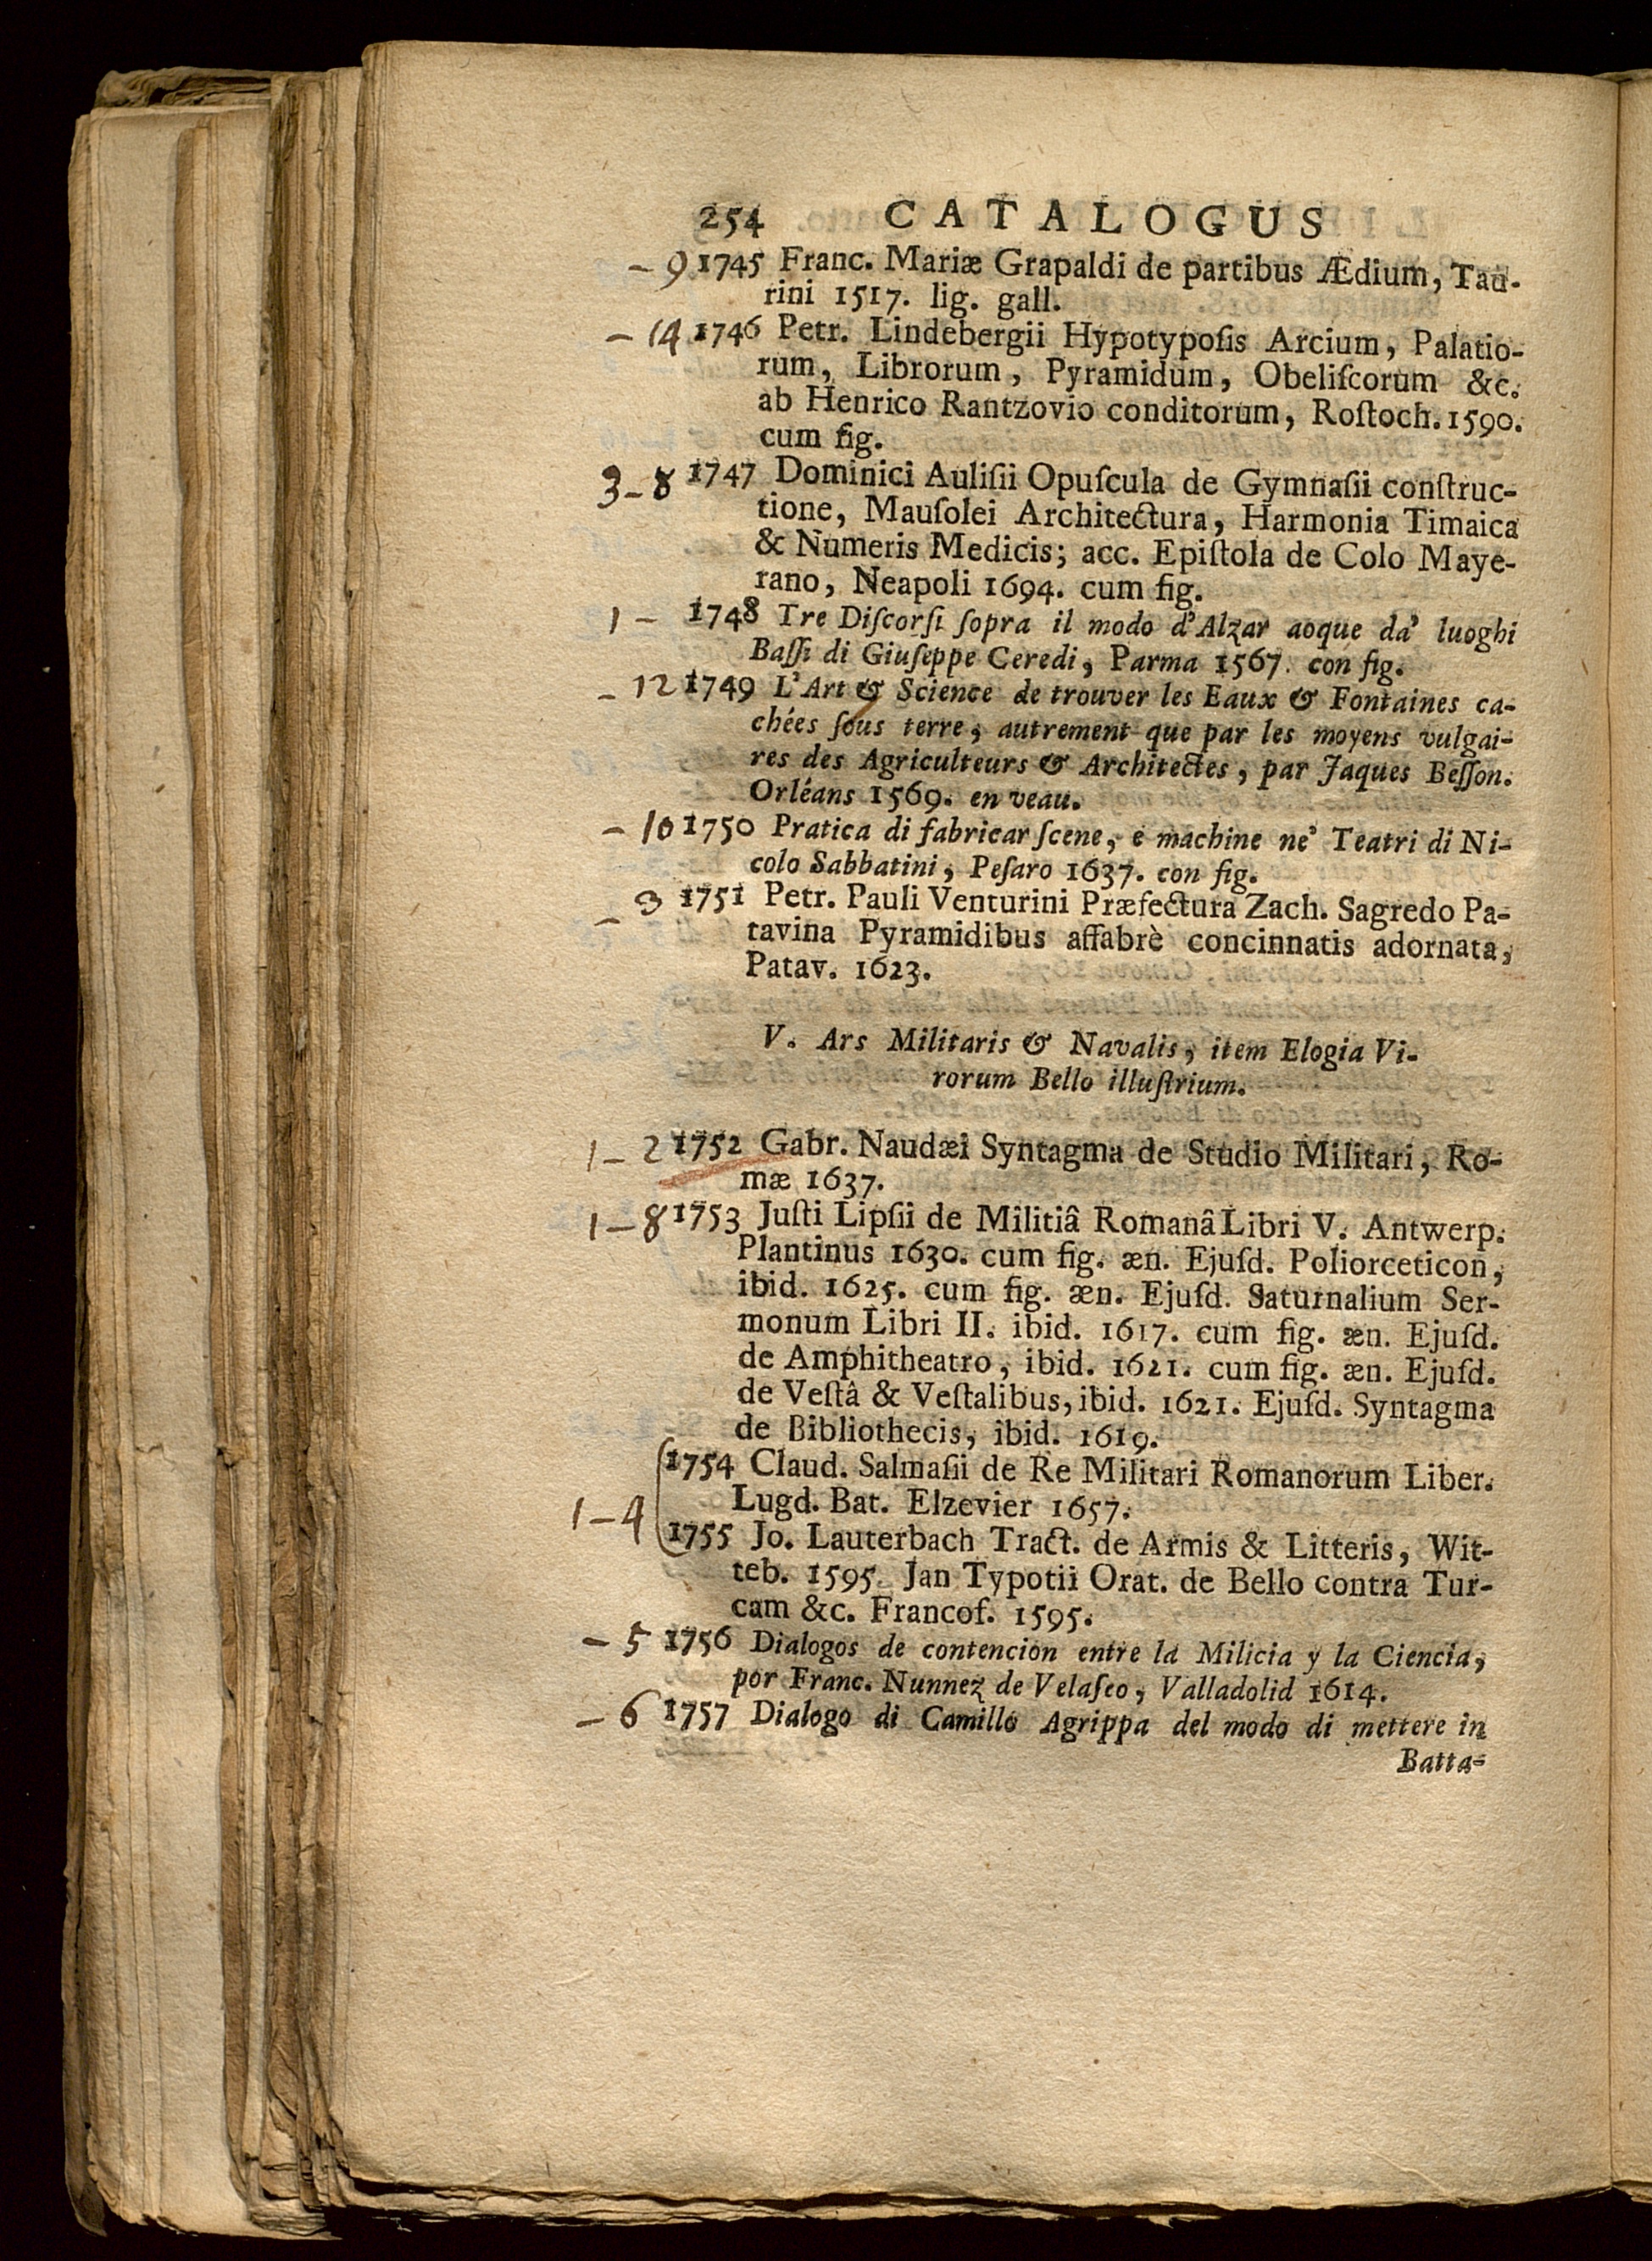 254 CATALOGUS
- 9 1745 Franc. Mariæ Grapaldi de partibus Ædium, Tau-
rini 1517. lig. gall.
- 14 1746 Petr. Lindebergii Hypotypoſis Arcium, Palatio-
rum, Librorum, Pyramidum, Obeliſcorum &c.
ab Henrico Rantzovio conditorum, Roſtoch. 1590.
cum fig.
3 - 8 1747 Dominici Auliſii Opuſcula de Gymnaſii conſtruc-
tione, Mauſolei Architectura, Harmonia Timaica
& Numeris Medicis; acc. Epiſtola de Colo Maye-
rano, Neapoli 1694. cum fig.
1 - 1748 Tre Diſcorſi ſopra il modo d'Alzar aoque da' luoghi
Baſſi di Giuſeppe Ceredi, Parma 1567. con fig.
- 12 1749 L'Art & Science de trouver les Eaux & Fontaines ca-
chées ſous terre, autrement que par les moyens vulgai-
res des Agriculteurs & Architectes, par Jaques Beſſon.
Orléans 1569. en veau.
- 10 1750 Pratica di fabricar ſcene, e machine ne' Teatri di Ni-
colo Sabbatini, Peſaro 1637. con fig.
- 3 1751 Petr. Pauli Venturini Præfectura Zach. Sagredo Pa-
tavina Pyramidibus affabrè concinnatis adornata,
Patav. 1623.
V. Ars Militaris & Navalis, item Elogia Vi-
rorum Bello illuſtrium.
1 - 2 1752 Gabr. Naudæi Syntagma de Studio Militari, Ro-
mæ 1637.
1 - 8 1753 Juſti Lipſii de Militiâ Romanâ Libri V. Antwerp.
Plantinus 1630. cum fig. æn. Ejuſd. Poliorceticon,
ibid. 1625. cum fig. æn. Ejuſd. Saturnalium Ser-
monum Libri II. ibid. 1617. cum fig. æn. Ejuſd.
de Amphitheatro, ibid. 1621. cum fig. æn. Ejuſd.
de Veſtâ & Veſtalibus, ibid. 1621. Ejuſd. Syntagma
de Bibliothecis, ibid. 1619.
1754 Claud. Salmaſii de Re Militari Romanorum Liber.
Lugd. Bat. Elzevier 1657.
1 - 4 1755 Jo. Lauterbach Tract. de Armis & Litteris, Wit-
teb. 1595. Jan Typotii Orat. de Bello contra Tur-
cam &c. Francof. 1595.
- 5 1756 Dialogos de contencion entre la Milicia y la Ciencia,
por Franc. Nunnez de Velaſco, Valladolid 1614.
- 6 1757 Dialogo di Camillo Agrippa del modo di mettere in
Batta-